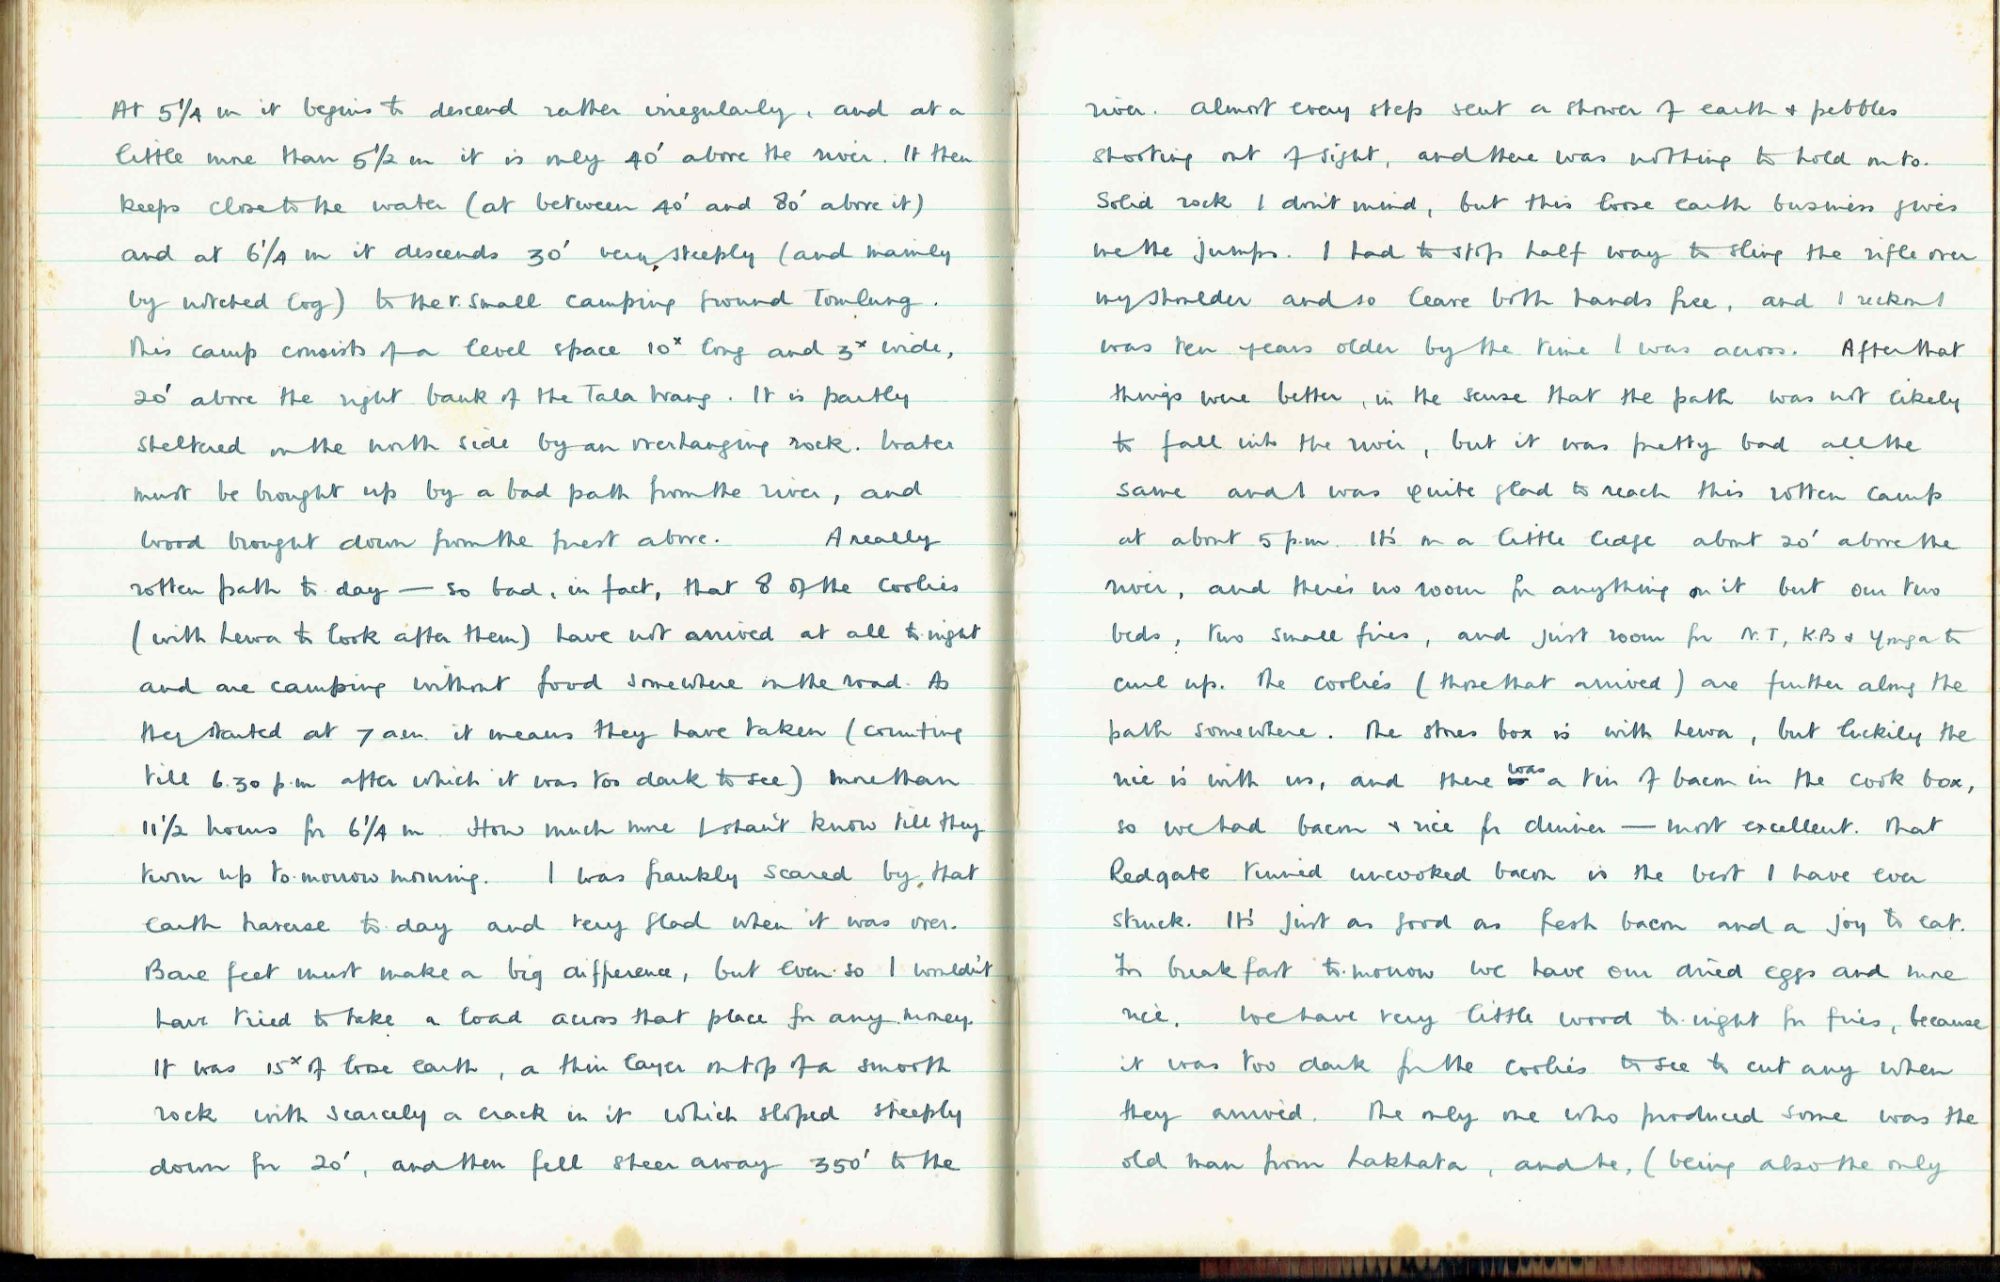 At 5¼ m it begins to descend rather irregularly, and at a
little more than 5½ m it is only 40' above the river. It then
keeps close to the water (at between 40' and 80' above it)
and at 6¼ m it descends 30' very steeply (and mainly
by notched log) to the v. small camping ground Tomlung.
This camp consists of a level space 10ˣ long and 3ˣ wide,
20' above the right bank of the Tala Wang. It is partly
sheltered on the north side by an overhanging rock. Water
must be brought up by a bad path from the river, and
wood brought down from the forest above. A really
rotten path to-day — so bad, in fact, that 8 of the coolies
(with Lewa to look after them) have not arrived at all to-night
and are camping without food somewhere on the road. As
they started at 7 a.m. it means they have taken (counting
till 6.30 p.m after which it was too dark to see) more than
11½ hours for 6¼ m. How much more I shan't know till they
turn up to-morrow morning. I was frankly scared by that
earth traverse to-day and very glad when it was over.
Bare feet must make a big difference, but even so I wouldn't
have tried to take a load across that place for any money.
It was 15ˣ of loose earth, a thin layer on top of a smooth
rock with scarcely a crack in it which sloped steeply
down for 20', and then fell sheer away 350' to the
river. Almost every step sent a shower of earth & pebbles
shooting out of sight, and there was nothing to hold on to.
Solid rock I don't mind, but this loose earth business gives
me the jumps. I had to stop half way to sling the rifle over
my shoulder and so leave both hands free, and I reckon I
was ten years older by the time I was across. After that
things were better, in the sense that the path was not likely
to fall into the river, but it was pretty bad all the
same and I was quite glad to reach this rotten camp
at about 5 p.m. It's on a little ledge about 20' above the
river, and there's no room for anything on it but our two
beds, two small fires, and just room for N.T, K.B & Yonga to
curl up. The coolies (those that arrived) are further along the
path somewhere. The stores box is with Lewa, but luckily the
rice is with us, and there was a tin of bacon in the cook box,
so we had bacon & rice for dinner — most excellent. That
Redgate tinned uncooked bacon is the best I have ever
struck. It's just as good as fresh bacon and a joy to eat.
For breakfast to-morrow we have our dried eggs and more
rice. We have very little wood to-night for fires, because
it was too dark for the coolies to see to cut any when
they arrived. The only one who produced some was the
old man from Lakhata, and he, (being also the only